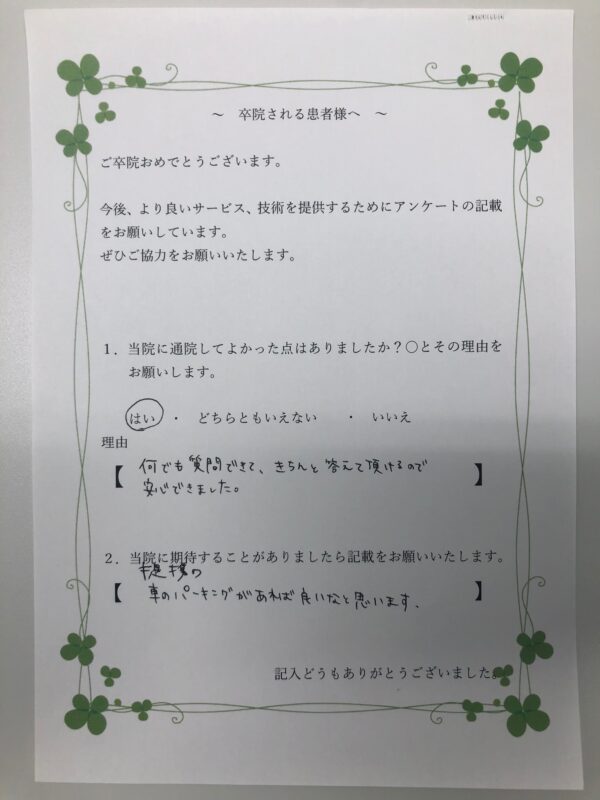 ～　卒院される患者様へ　～
ご卒院おめでとうございます。
今後、より良いサービス、技術を提供するためにアンケートの記載
をお願いしています。
ぜひご協力をお願いいたします。
１．当院に通院してよかった点はありましたか？○とその理由を
お願いします。
はい　・　どちらともいえない　・　いいえ
理由
【何でも質問できて、きちんと答えて頂けるので
安心できました。】
２．当院に期待することがありましたら記載をお願いいたします。
提携の
【車のパーキングがあれば良いなと思います、】
記入どうもありがとうございました。